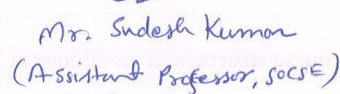 Mr. Sudesh Kumar
(Assistant Professor, SOCSE)